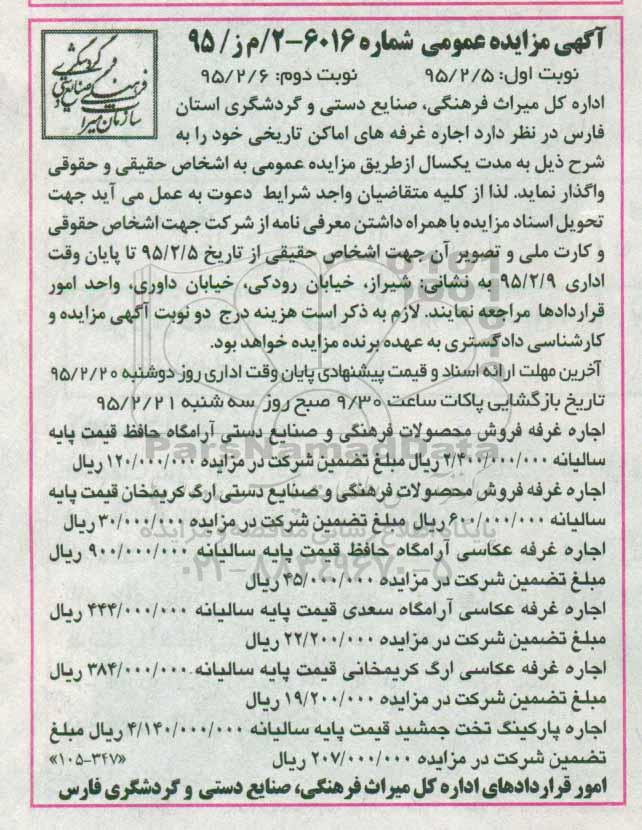 آگهی مزایده عمومی شماره ۶۰۱۶-۲/م ز/ ۹۵
نوبت اول: ۹۵/۲/۵ نوبت دوم: ۹۵/۲/۶
سازمان میراث فرهنگی صنایع دستی و گردشگری
اداره کل میراث فرهنگی، صنایع دستی و گردشگری استان
فارس در نظر دارد اجاره غرفه های اماکن تاریخی خود را به
شرح ذیل به مدت یکسال ازطریق مزایده عمومی به اشخاص حقیقی و حقوقی
واگذار نماید. لذا از کلیه متقاضیان واجد شرایط دعوت به عمل می آید جهت
تحویل اسناد مزایده با همراه داشتن معرفی نامه از شرکت جهت اشخاص حقوقی
و کارت ملی و تصویر آن جهت اشخاص حقیقی از تاریخ ۹۵/۲/۵ تا پایان وقت
اداری ۹۵/۲/۹ به نشانی: شیراز، خیابان رودکی، خیابان داوری، واحد امور
قراردادها مراجعه نمایند. لازم به ذکر است هزینه درج دو نوبت آگهی مزایده و
کارشناسی دادگستری به عهده برنده مزایده خواهد بود.
آخرین مهلت ارائه اسناد و قیمت پیشنهادی پایان وقت اداری روز دوشنبه ۹۵/۲/۲۰
تاریخ بازگشایی پاکات ساعت ۹/۳۰ صبح روز سه شنبه ۹۵/۲/۲۱
اجاره غرفه فروش محصولات فرهنگی و صنایع دستی آرامگاه حافظ قیمت پایه
سالیانه ۲/۴۰۰/۰۰۰/۰۰۰ ریال مبلغ تضمین شرکت در مزایده ۱۲۰/۰۰۰/۰۰۰ ریال
اجاره غرفه فروش محصولات فرهنگی و صنایع دستی ارگ کریمخان قیمت پایه
سالیانه ۶۰۰/۰۰۰/۰۰۰ ریال مبلغ تضمین شرکت در مزایده ۳۰/۰۰۰/۰۰۰ ریال
اجاره غرفه عکاسی آرامگاه حافظ قیمت پایه سالیانه ۹۰۰/۰۰۰/۰۰۰ ریال
مبلغ تضمین شرکت در مزایده ۴۵/۰۰۰/۰۰۰ ریال
اجاره غرفه عکاسی آرامگاه سعدی قیمت پایه سالیانه ۴۴۴/۰۰۰/۰۰۰ ریال
مبلغ تضمین شرکت در مزایده ۲۲/۲۰۰/۰۰۰ ریال
اجاره غرفه عکاسی ارگ کریمخانی قیمت پایه سالیانه ۳۸۴/۰۰۰/۰۰۰ ریال
مبلغ تضمین شرکت در مزایده ۱۹/۲۰۰/۰۰۰ ریال
اجاره پارکینگ تخت جمشید قیمت پایه سالیانه ۴/۱۴۰/۰۰۰/۰۰۰ ریال مبلغ
تضمین شرکت در مزایده ۲۰۷/۰۰۰/۰۰۰ ریال «۱۰۵-۳۴۷»
امور قراردادهای اداره کل میراث فرهنگی، صنایع دستی و گردشگری فارس
ParsNamadData
پایگاه اطلاع رسانی مناقصه و مزایده
۰۲۱-۸۸۳۴۹۶۷۰-۵